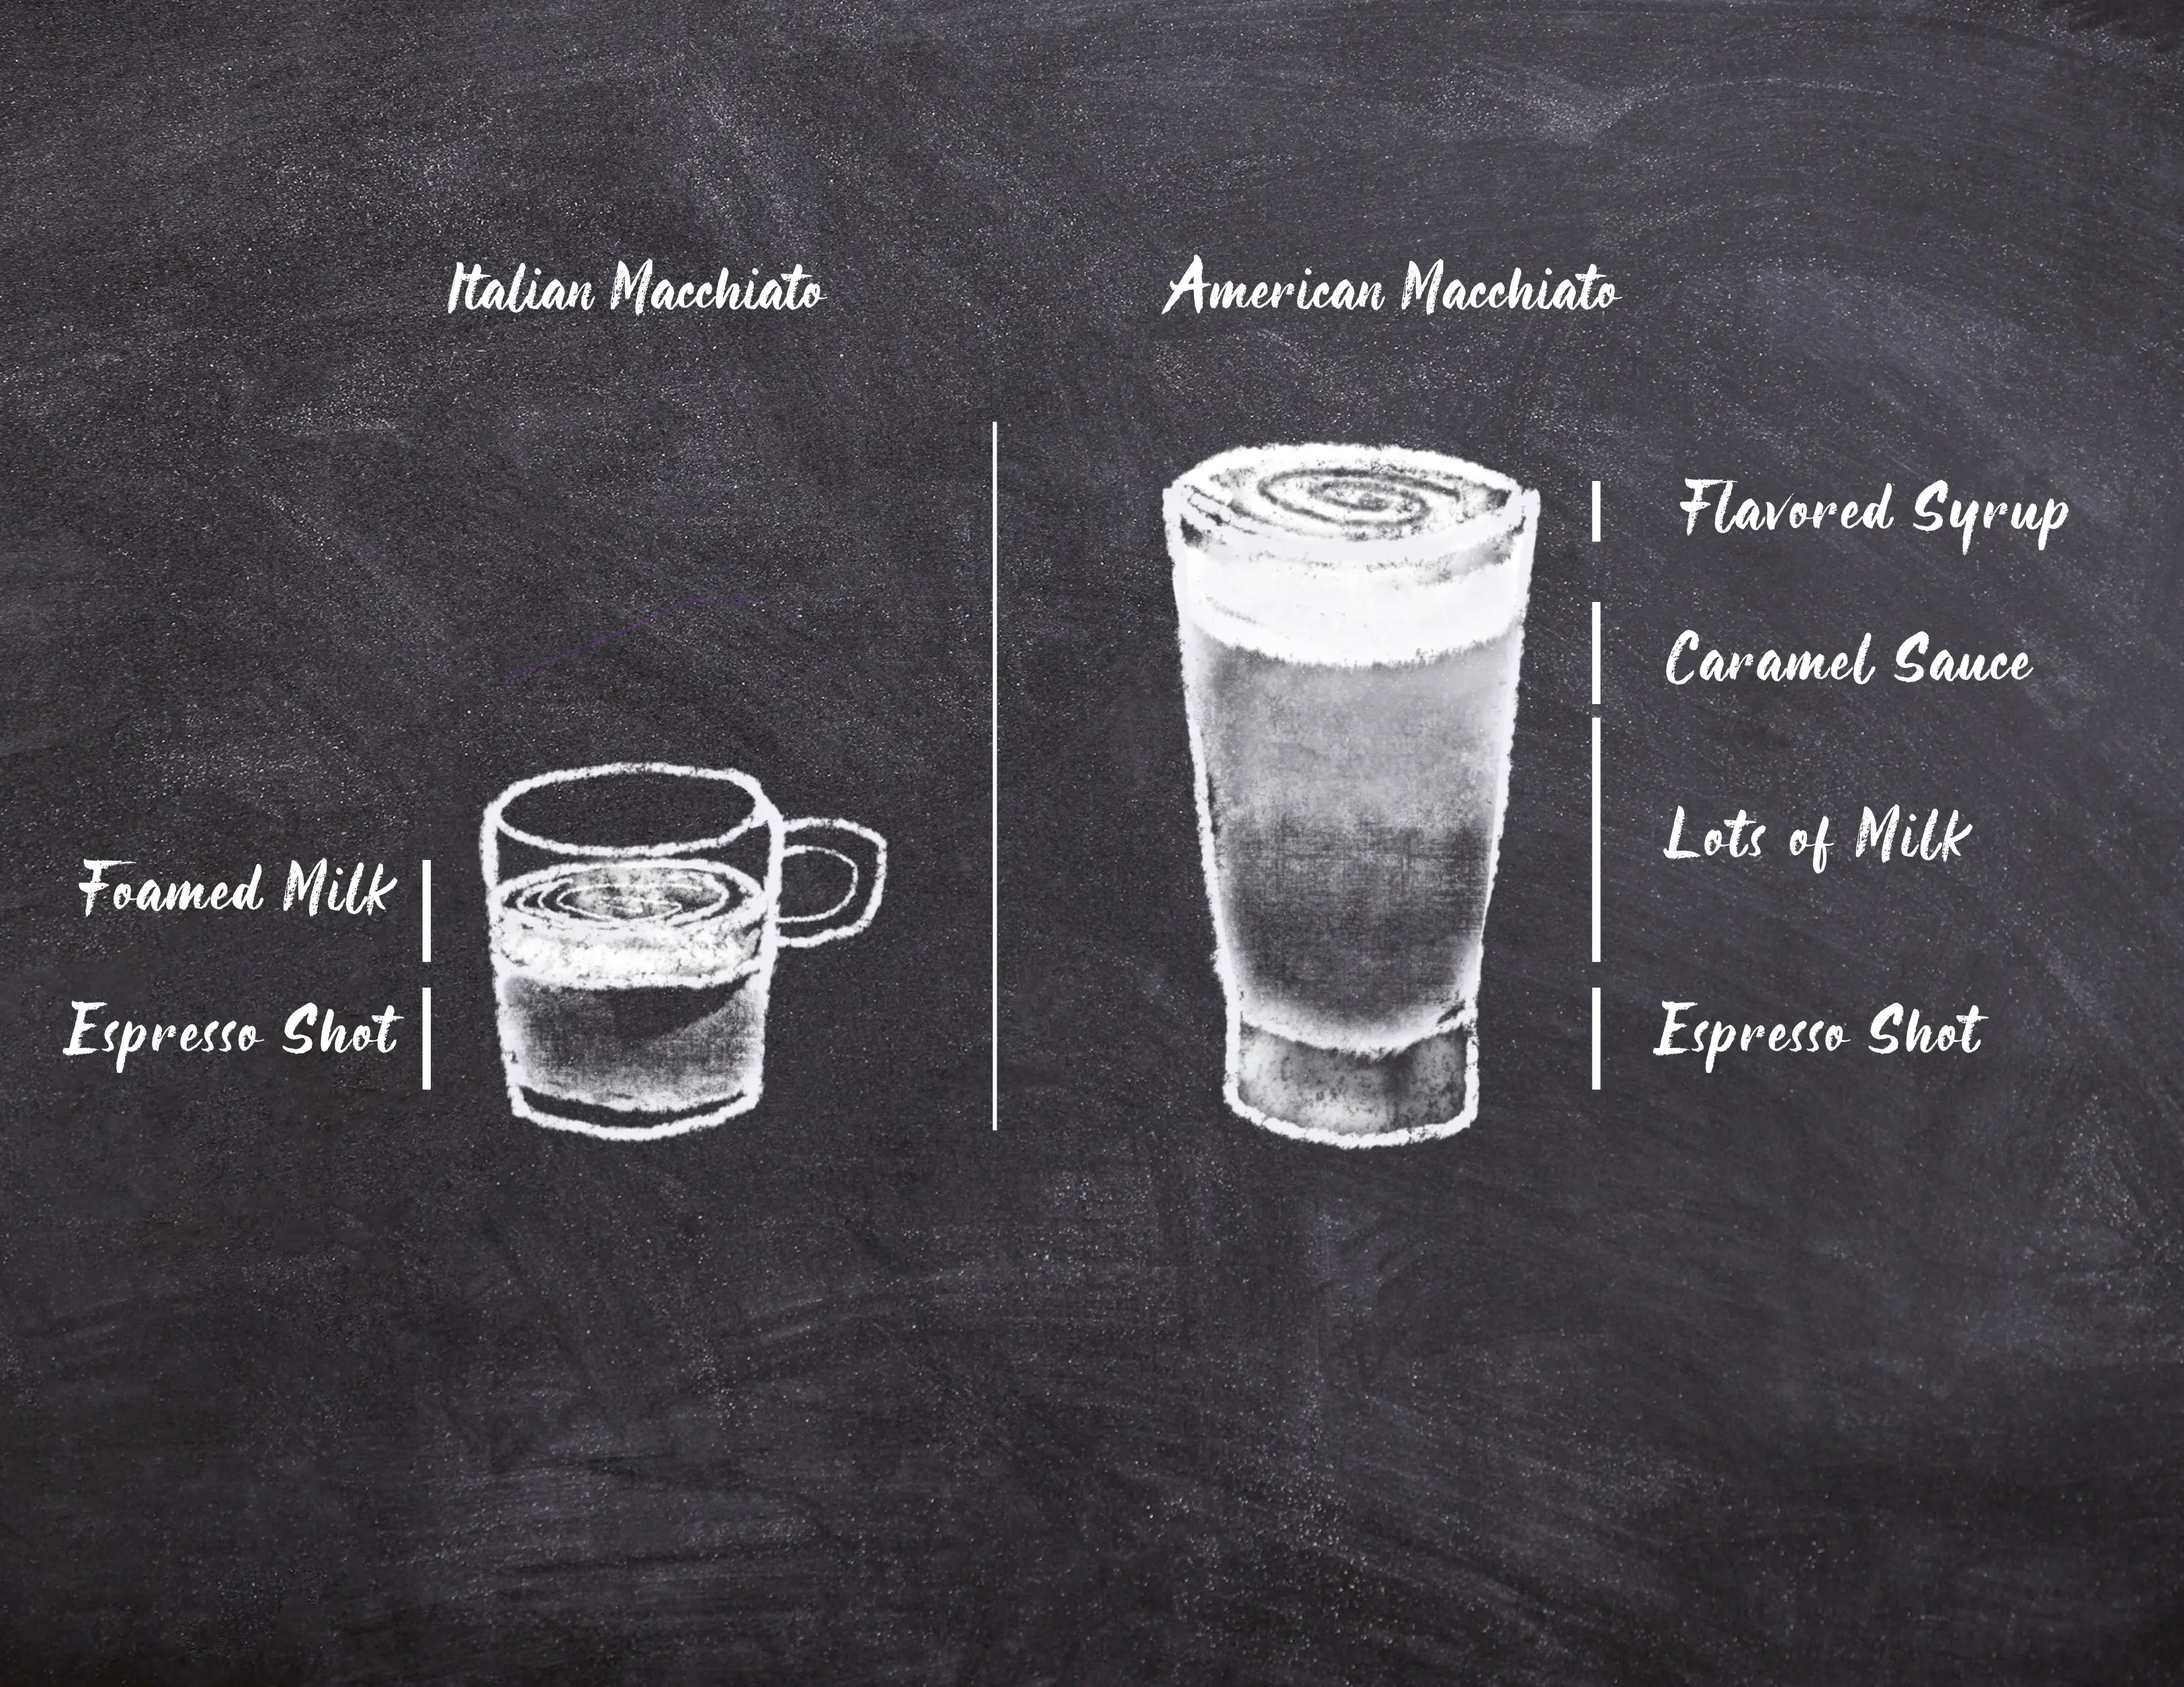 Italian Macchiato
American Macchiato
Foamed Milk
Espresso Shot
Flavored Syrup
Caramel Sauce
Lots of Milk
Espresso Shot